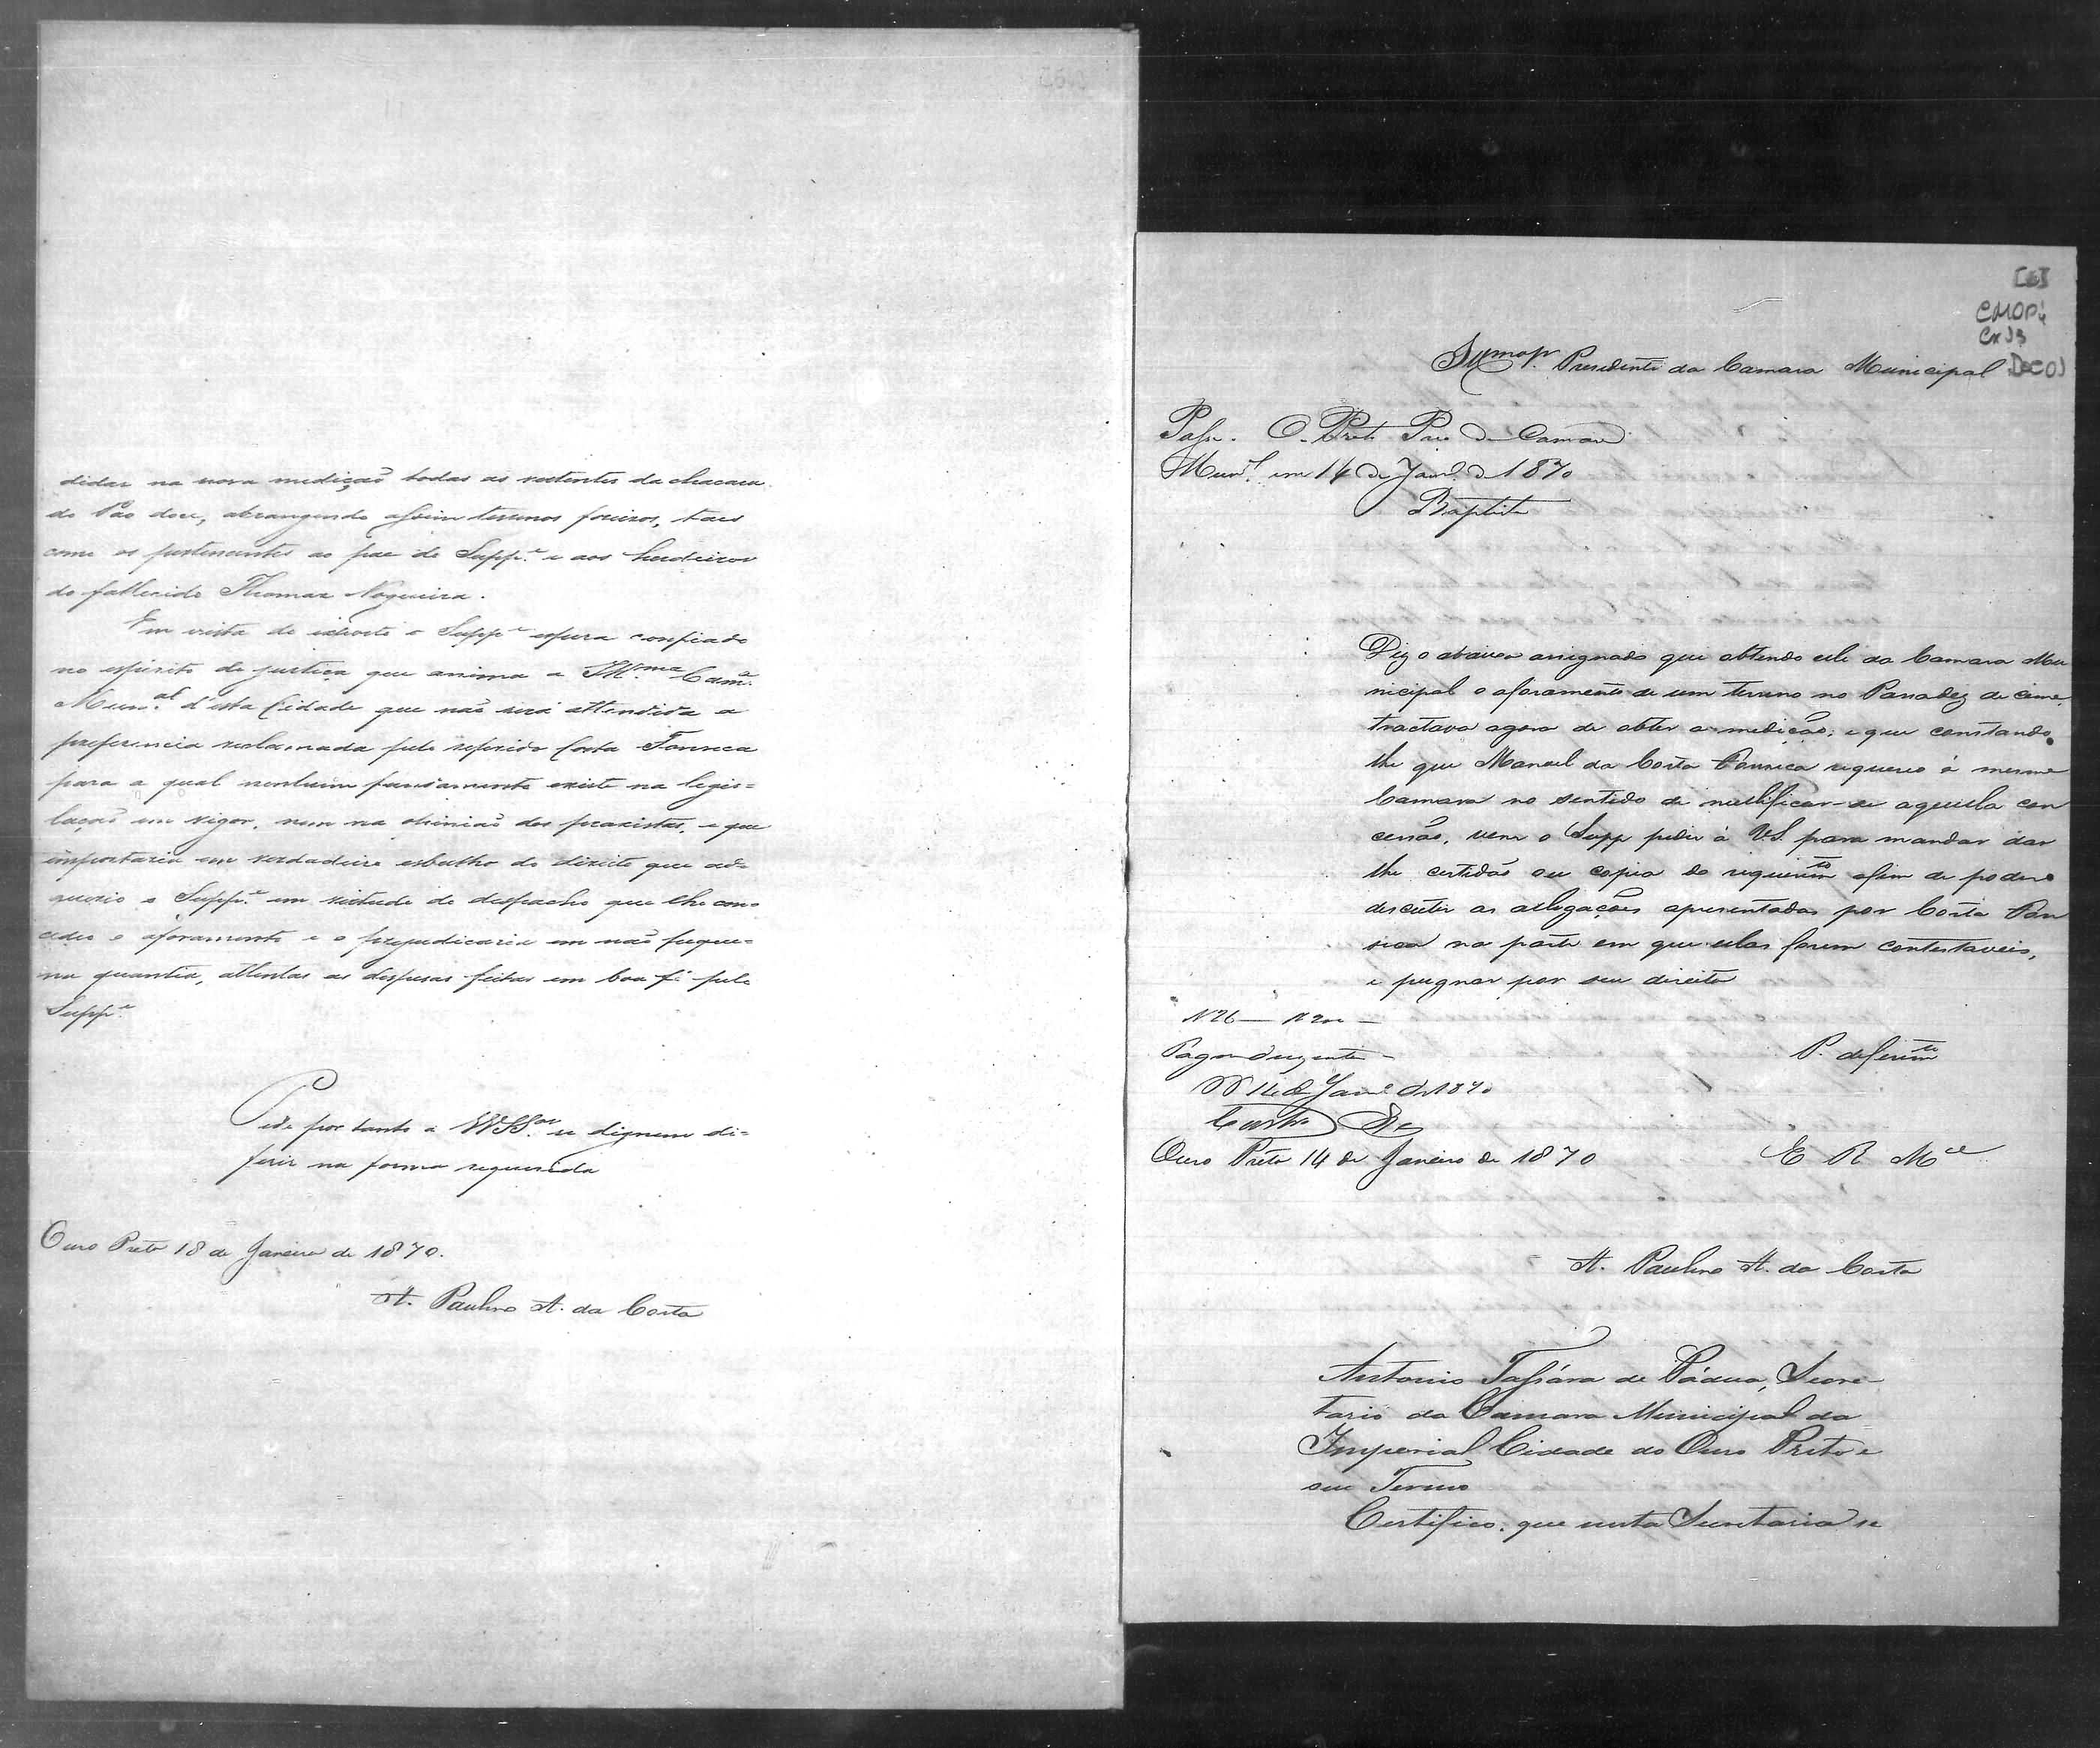 didas na nova medição todas as vertentes da chacara
do Pão doce, abrangendo assim terrenos foreiros, taes
como os pertencentes ao pae do Supp.e e aos herdeiros
do fallecido Thomaz Nogueira.
Em vista do exposto o Supp.e espera confiado
no espirito de justiça que anima a Ill.ma Cam.a
Mun.al d'esta Cidade que não será attendida a
preferencia reclamada pelo referido Costa Fonseca
para a qual nenhum fundamento existe na legis=
lação em vigor, nem na opinião dos praxistas, e que
importaria em verdadeiro esbulho do direito que ad=
querio o Supp.e em virtude do despacho que lhe con=
cedeo o aforamento e o prejudicaria em não peque=
na quantia, attentas as despesas feitas em boa fé pelo
Supp.e
Pede por tanto a VVSS.as se dignem di=
ferir na forma requerida
Ouro Preto 18 de Janeiro de 1870.
A. Paulino A. da Costa
CMOP
Cx 33
Doc 01
Ill.mo Sr. Presidente da Camara Municipal
Passe. O. Preto Paço da Camara
Mun.l em 14 de Jan.o de 1870
Baptista
Diz o abaixo assignado que obtendo elle da Camara Mu
nicipal o aforamento de um terreno no Passadez de cima,
tractava agora de obter a medição; e que constando
lhe que Manoel da Costa Fonseca requereo á mesma
Camara no sentido de nullificar-se aquella con
cessão, vem o Supp pedir á V.S. para mandar dar
lhe certidão ou copia do requerim.to afim de poder
descutir as allegações apresentadas por Costa Fon
seca na parte em que ellas forem contestaveis,
e pugnar por seu direito
N 26
Pagou duzentos
P. deferim.to
14 de Jan.o de 1870
Ouro Preto 14 de Janeiro de 1870
E R M.ce
A. Paulino A. da Costa
Antonio Tassára de Pádua, Secre-
tario da Camara Municipal da
Imperial Cidade do Ouro Preto e
seu Termo
Certifico, que nesta Secretaria se